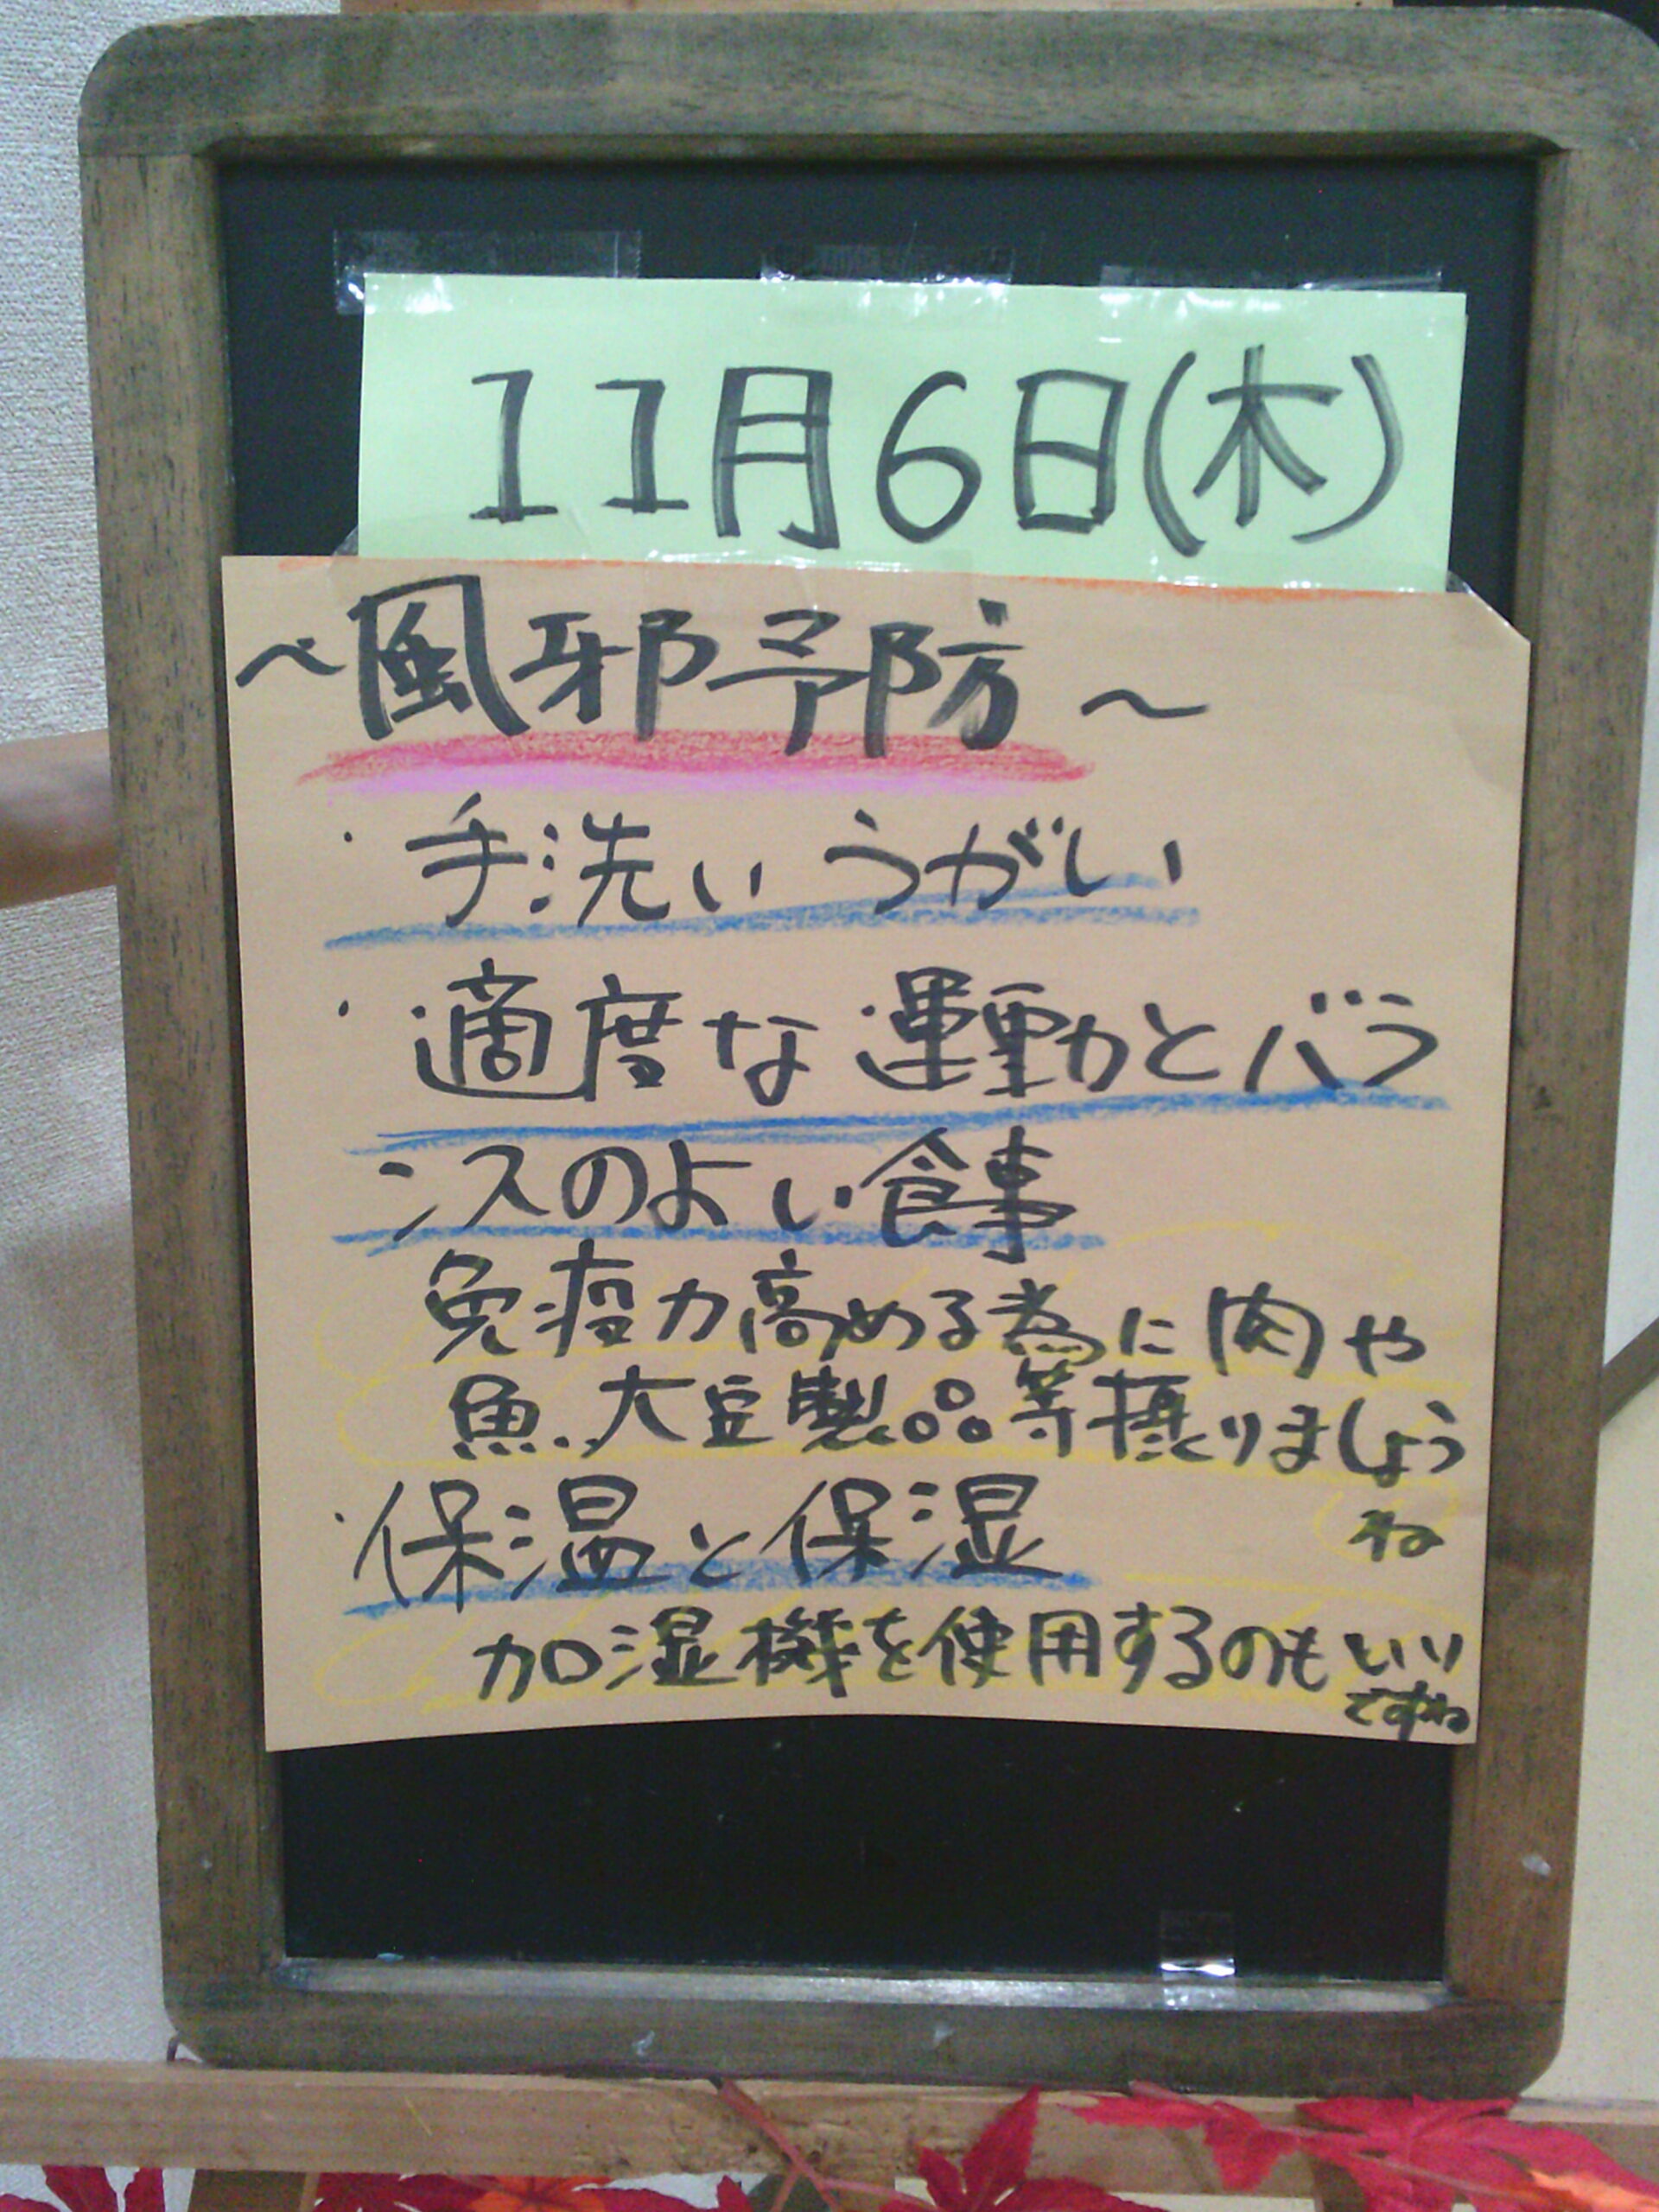 11月6日(木)
～風邪予防～
・手洗い うがい
・適度な運動とバラ
ンスのよい食事
免疫力高める為に肉や
魚、大豆製品等摂りましょう
ね
・保温と保湿
加湿機を使用するのもいい
ですね